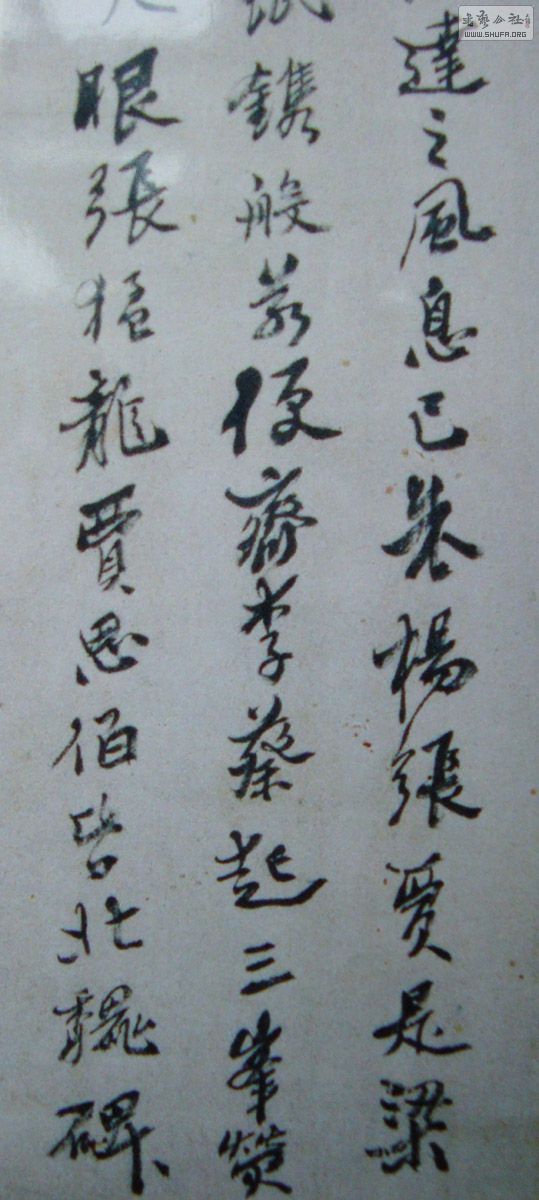 書藝公社
WWW.SHUFA.ORG
達之風息已楊張賈是梁
鐫般若便齋李蔡起三峯贊
眼張猛龍賈思伯皆北魏碑